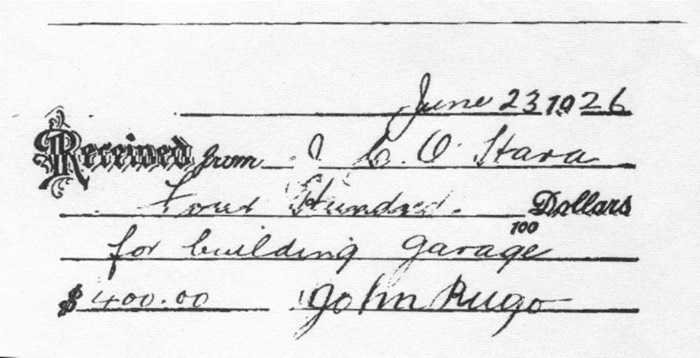 June 23 1926
Received from J. C. O'Hara
Four Hundred Dollars
100
for building garage
$400.00 John Rugo